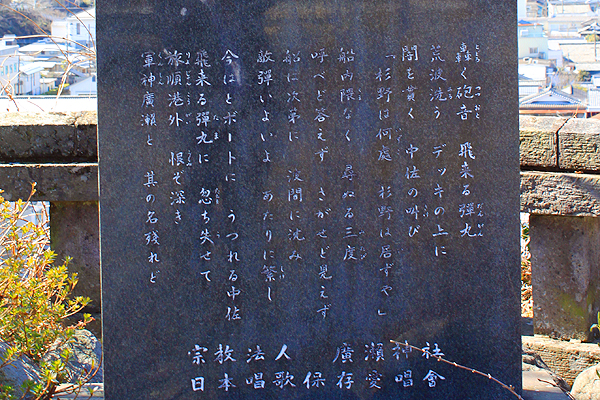 轟く砲音　飛来る彈丸
荒波洗う　デッキの上に
闇を貫く　中佐の叫び
「杉野は何處　杉野は居ずや」
船内隈なく　尋ぬる三度
呼べど答えず　さがせど見えず
船は次第に　波間に沈み
敵彈いよいよ　あたりに繁し
今はとボートに　うつれる中佐
飛来る彈丸に　忽ち失せて
旅順港外　恨ぞ深き
軍神廣瀬と　其の名残れど
宗教法人廣瀬神社
日本唱歌保存愛唱會